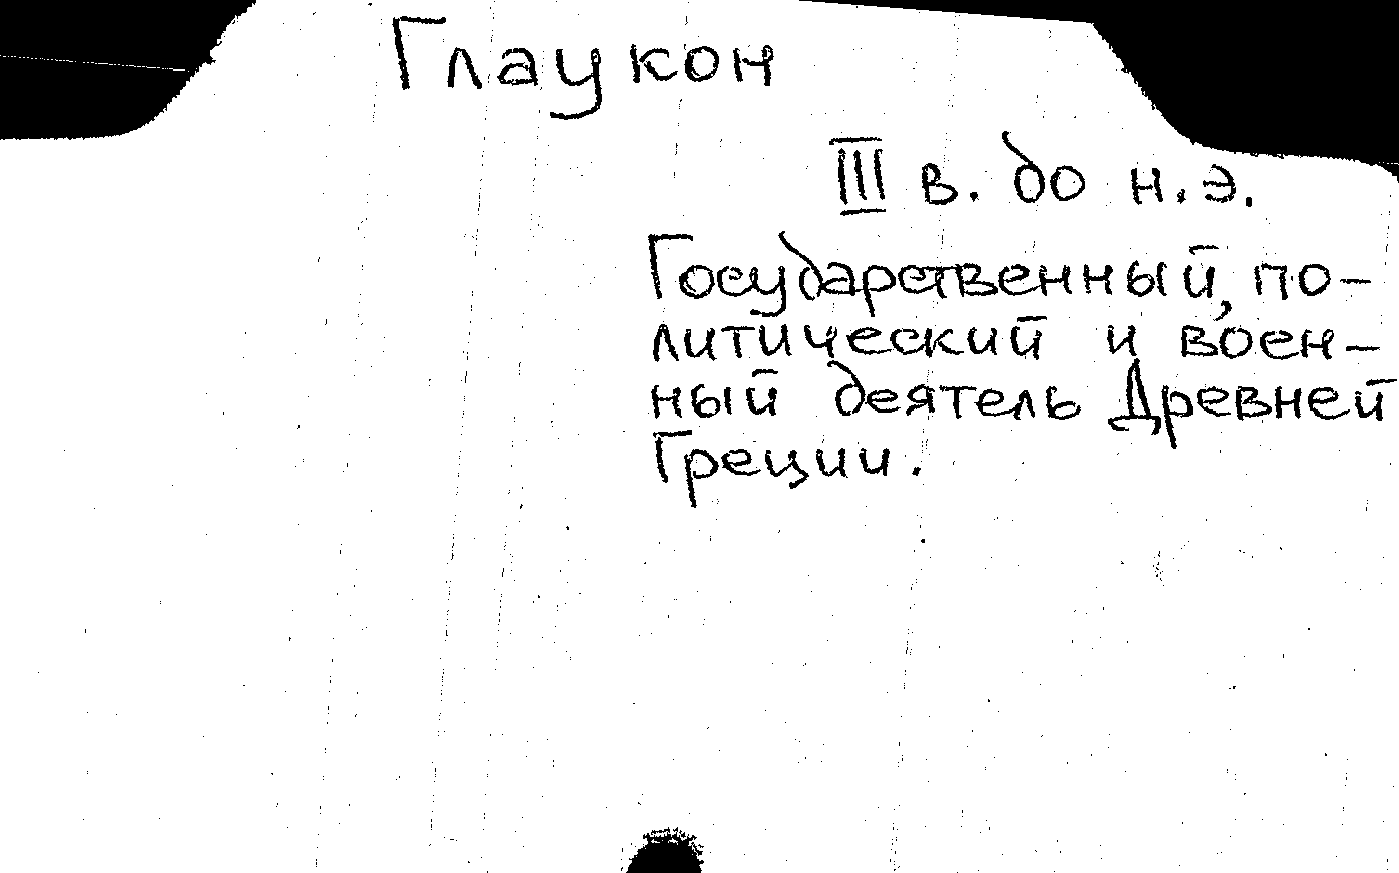 Глаукон
III в. до н.э.
Государственный, по-
литический и воен-
ный деятель Древней
Греции.